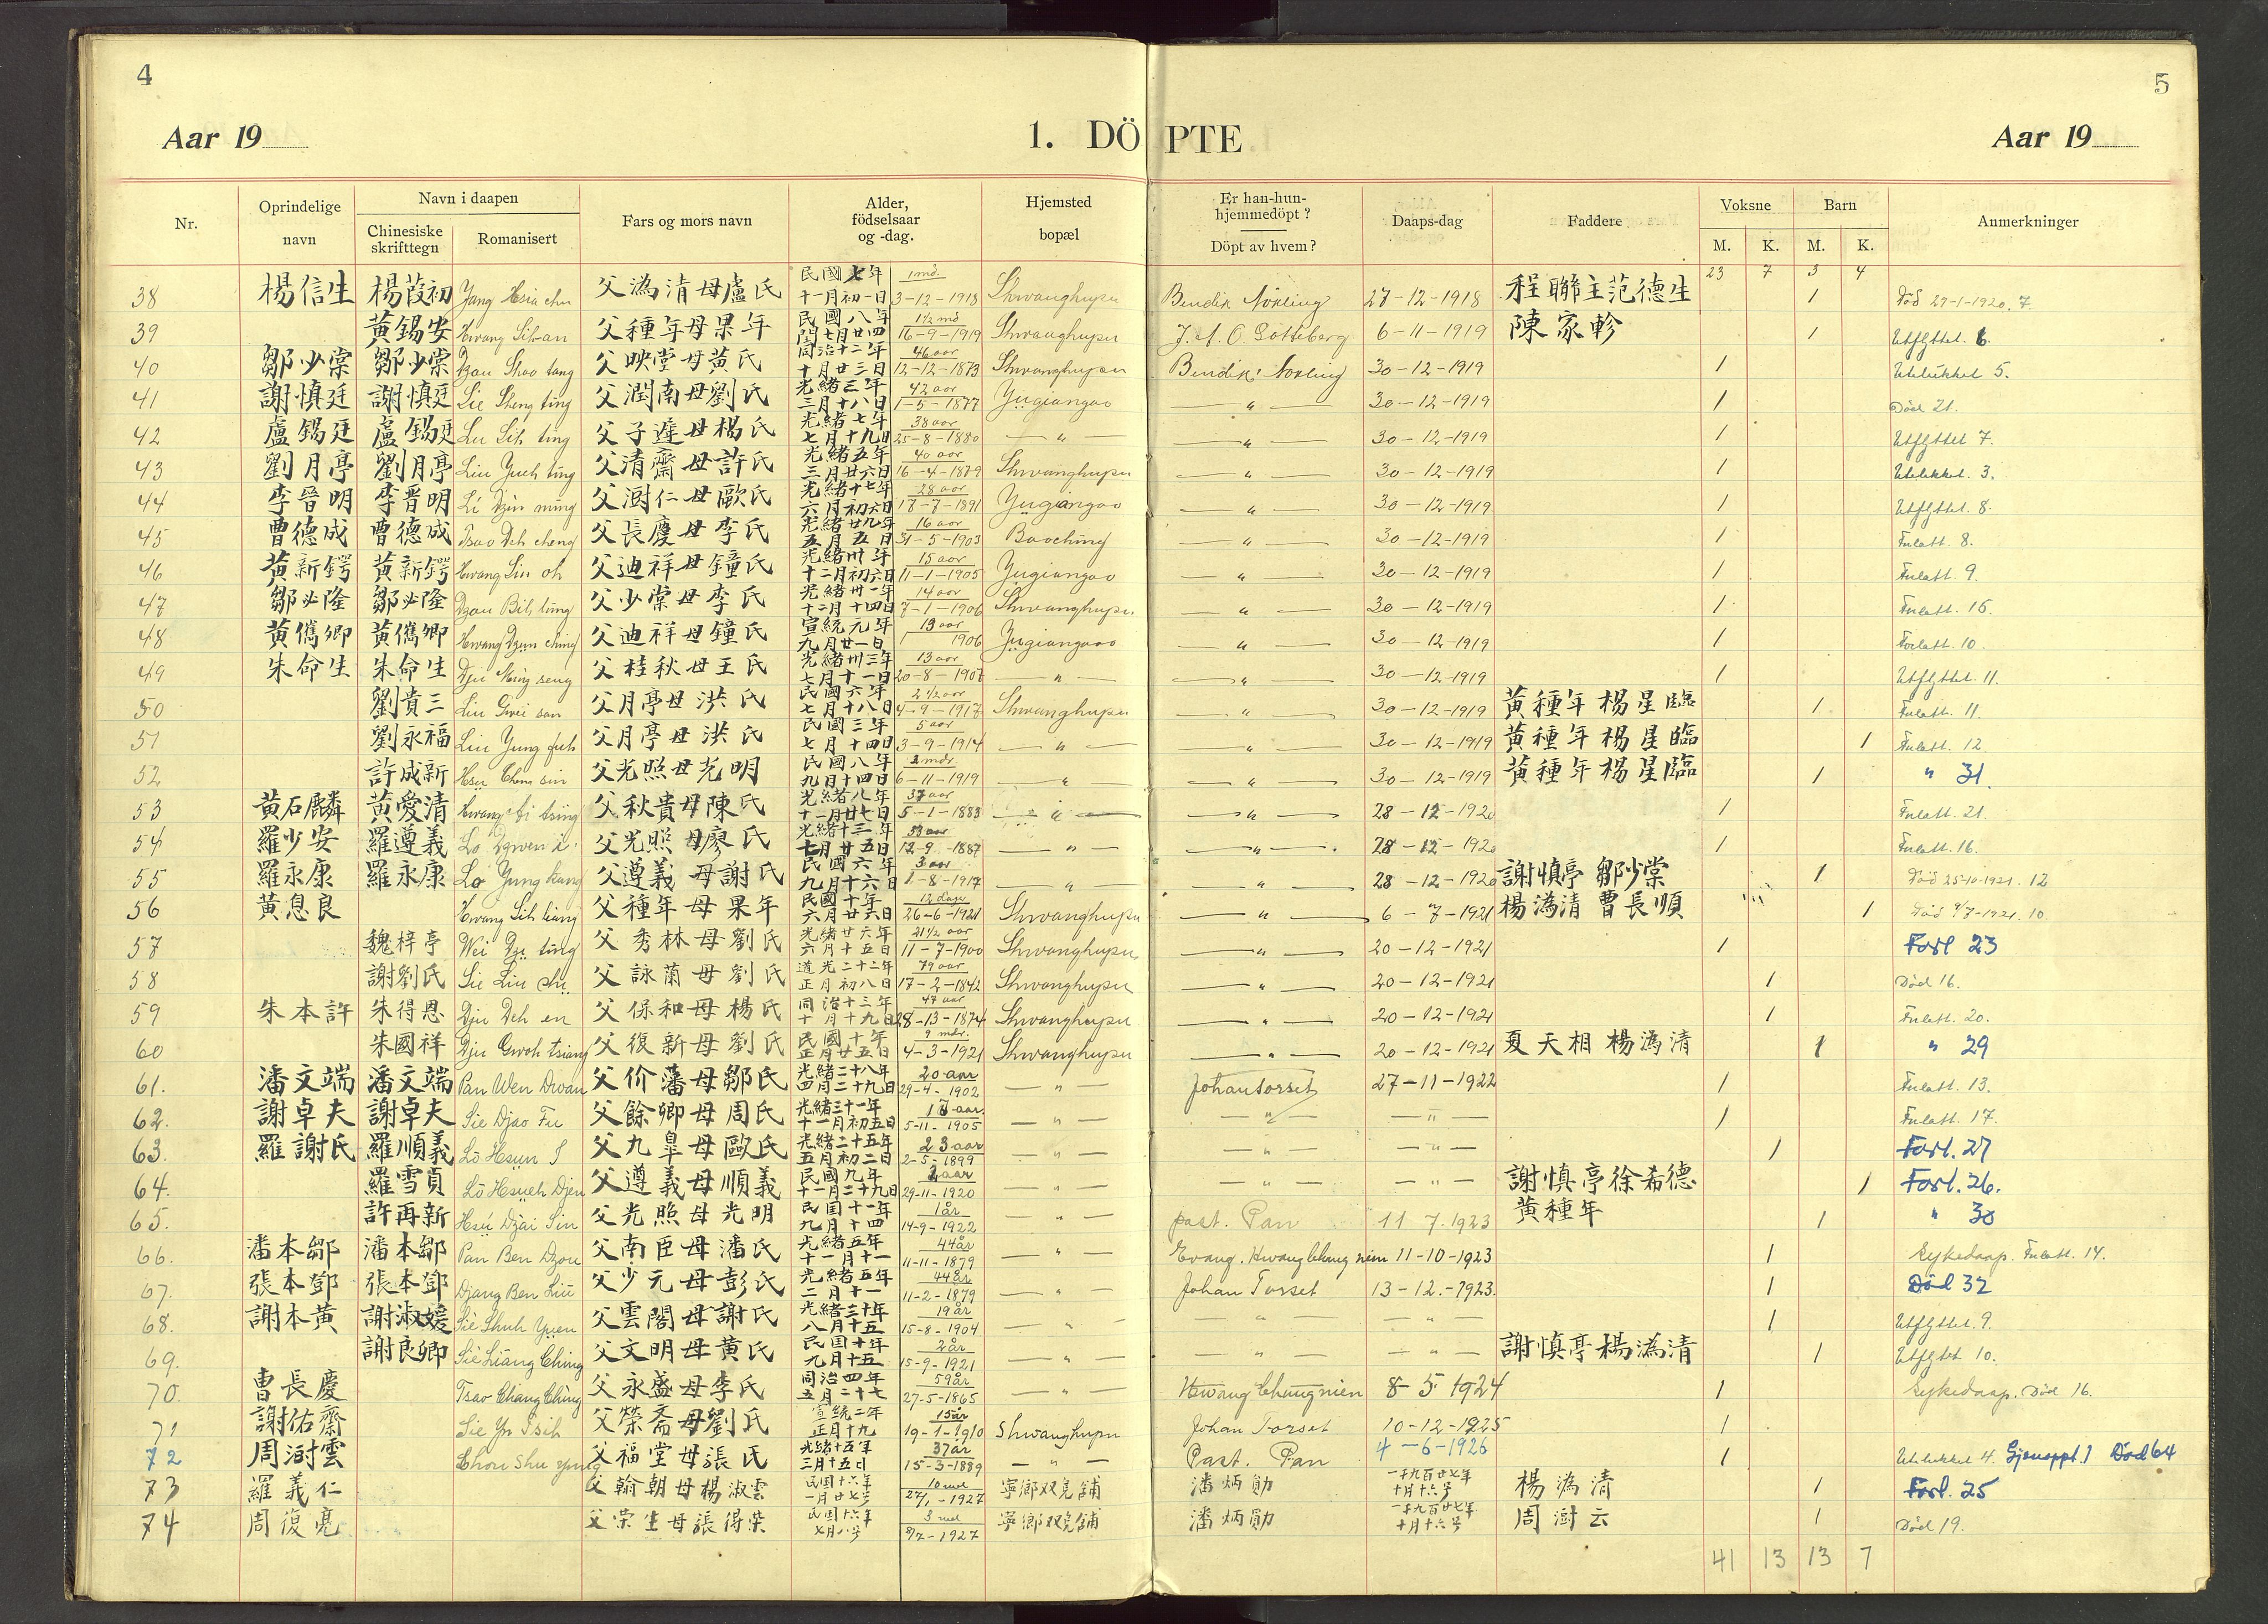 4
5
Aar 19
1. DÖPTE
Aar 19
Nr.
Oprindelige navn
Navn i daapen
Chinesiske skrifttegn
Romanisert
Fars og mors navn
Alder, födselsaar og -dag.
Hjemsted bopæl
Er han-hun-hjemmedöpt ?
Döpt av hvem ?
Daaps-dag
Faddere
Voksne
M. K.
Barn
M. K.
Anmerkninger
23 7 3 4
38 楊信生 楊葭初 Yang Hsia chu 父溈清母盧氏 民國七年十一月初一日 1 md. 3-12-1918 Shwanghupu Bendik Noxling 27-12-1918 程聯主范德生 1 Död 27-1-1920. 7
39 黃錫安 Hwang Sih-an 父種年母果年 民國八年閏七月廿四 1½ md 16-9-1919 Shwanghupu J. A. O. Gotteberg 6-11-1919 陳家軫 1 Utflyttet 6.
40 鄒少棠 鄒少棠 Dzou Shao tang 父映堂母黃氏 同治十二年十月廿三日 46 aar 12-12-1873 Shwanghupu Bendik Noxling 30-12-1919 1 Utelukket 5.
41 謝慎廷 謝慎廷 Sie Sheng ting 父潤南母劉氏 光緒三年三月十八日 42 aar 1-5-1877 Yügiangao — " — 30-12-1919 1 Död 21.
42 盧錫廷 盧錫廷 Lu Sih ting 父子遲母楊氏 光緒七年七月十九日 38 aar 25-8-1880 — " — — " — 30-12-1919 1 Utflyttet 7.
43 劉月亭 劉月亭 Liu Yueh ting 父清齋母許氏 光緒五年三月廿六日 40 aar 16-4-1879 Shwanghupu — " — 30-12-1919 1 Utelukket. 3.
44 李晉明 李晉明 Li Dzin ming 父澍仁母歐氏 光緒十七年六月初六日 28 aar 17-7-1891 Yügiangao — " — 30-12-1919 1 Utflyttet. 8.
45 曹德成 曹德成 Tsao Deh cheng 父長慶母李氏 光緒廿九年五月五日 16 aar 31-5-1903 Baoching — " — 30-12-1919 1 Forlatt. 8.
46 黃新鍔 黃新鍔 Hwang Sin oh 父迪祥母鐘氏 光緒卅年十二月初六日 15 aar 11-1-1905 Yügiangao — " — 30-12-1919 1 Forlatt. 9.
47 鄒必隆 鄒必隆 Dzou Bih lung 父少棠母李氏 光緒卅一年十二月十四日 14 aar 7-1-1906 Shwanghupu — " — 30-12-1919 1 Forlatt. 15.
48 黃儁卿 黃儁卿 Hwang Dzün ching 父迪祥母鐘氏 宣統元年九月廿一日 13 aar 1906 Yügiangao — " — 30-12-1919 1 Forlatt. 10.
49 朱命生 朱命生 Dju Ming seng 父桂秋母王氏 光緒卅三年七月十一日 13 aar 20-8-1907 — " — — " — 30-12-1919 1 Utflyttet. 11.
50 劉貴三 Liu Gwei san 父月亭母洪氏 民國六年七月十八日 2½ aar 4-9-1917 Shwanghupu — " — 30-12-1919 黃種年楊星臨 1 Forlatt. 11.
51 劉永福 Liu Yung fuh 父月亭母洪氏 民國三年七月十四日 5 aar 3-9-1914 — " — — " — 30-12-1919 黃種年楊星臨 1 Forlatt. 12
52 許成新 Hsü Cheng sin 父光照母光明 民國八年九月十四日 2 mdr 6-11-1919 — " — — " — 30-12-1919 黃種年楊星臨 1 " 31
53 黃石麟 黃愛清 Hwang Ai tsing 父秋貴母陳氏 光緒八年十一月廿七日 37 aar 5-1-1883 — " — — " — 28-12-1920 1 Forlatt. 21.
54 羅少安 羅遵義 Lo Dzwen i 父光照母廖氏 光緒十三年七月廿五日 33 aar 12-9-1887 — " — — " — 28-12-1920 1 Forlatt. 16.
55 羅永康 羅永康 Lo Yung kang 父遵義母謝氏 民國六年九月十六日 3 aar 1-8-1917 — " — — " — 28-12-1920 謝慎亭鄒少棠 1 Död 25-10-1921. 12
56 黃息良 Hwang Sih liang 父種年母果年 民國十年六月廿六日 12 dage 26-6-1921 Shwanghupu — " — 6-7-1921 楊溈清曹長順 1 Död 9/7-1921. 10.
57 魏梓亭 Wei Dzi ting 父秀林母劉氏 光緒廿六年六月十五日 21½ aar 11-7-1900 Shwanghupu — " — 20-12-1921 1 Forl 23
58 謝劉氏 Sie Liu shi 父詠蘭母劉氏 道光二十二年正月初八日 79 aar 17-2-1842 Shwanghupu — " — 20-12-1921 1 Död 16.
59 朱本許 朱得恩 Dju Deh en 父保和母楊氏 同治十三年十月十九日 47 aar 28-13-1874 Shwanghupu — " — 20-12-1921 1 Forlatt. 20.
60 朱國祥 Dju Gwoh tsiang 父復新母劉氏 民國十年正月廿五日 9 mdr. 4-3-1921 Shwanghupu — " — 20-12-1921 夏天相楊溈清 1 " 29
61. 潘文端 潘文端 Pan Wen Dwan 父价藩母鄒氏 光緒二十八年四月二十九日 20 aar 29-4-1902 — " — Johan Torset 27-11-1922 1 Forlatt. 13.
62. 謝卓夫 謝卓夫 Sie Djao Fu 父餘卿母周氏 光緒三十一年十一月初五日 aar. 5-11-1905 — " — — " — — " — 1 Forlatt. 17.
63. 羅謝氏 羅順義 Lo Hsün I 父九皐母歐氏 光緒二十五年五月初二日 23 aar 2-5-1899 — " — — " — — " — 1 Forl. 27
64. 羅雪貞 Lo Hsüeh Djen 父遵義母順義 民國九年十一月二十九日 2 aar 29-11-1920 — " — — " — — " — 謝慎亭徐希德 1 Forl. 26.
65. 許再新 Hsü Dzai Sin 父光照母光明 民国十一年九月十四 1 år 14-9-1922 — " — past. Pan 11 7.1923 黃種年 1 " 30
66. 潘本鄒 潘本鄒 Pan Ben Dzou 父南臣母潘氏 光緒五年十一月十一 44 år 11-11-1879 — " — Evang. Hwang Chung nien 11-10-1923 1 Sykedaap. Forlatt. 14.
67. 張本鄧 張本鄧 Djang Ben 父少元母彭氏 光緒五年二月十一 44 år 11-2-1879 — " — Johan Torset 13-12.-1923. 1 Död 32
68. 謝本黃 謝淑媛 Sie Shuh Yüen 父雲閣母謝氏 光緒三十年八月十五 19 år 15-8-1904 — " — — " — — " — 1 Utflyttet. 9.
69. 謝良卿 Sie Liang Ching 父文明母黃氏 民国十年九月十五 2 år 15-9-1921 — " — — " — — " — 謝慎亭楊溈清 1 Utflyttet 10.
70. 曹長慶 Tsao Chang Ching 父永盛母李氏 同治四年五月二十七 59 år 27-5-1865 — " — Hwang Chungnien 8-5-1924 1 Sykedaap. Död 16.
71 謝佑齋 Sie Yu Tsih 父榮斋母劉氏 宣統二年正月十九 15 år 19-1-1910 Shwanghupu Johan Torset 10-12-1925 1
72 周澍雲 Chou Shu yung 父福堂母張氏 光緒十五年三月十五日 37 år 15-3-1889 — " — Past. Pan 4-6-1926 1 Utelukket 4. Gjenoppt. 1 Död 64
73 羅義仁 父翰朝母楊淑雲 民国十六年一月廿七号 10 md 27/1-1927 寧鄉双凫鋪 潘炳勛 一千九百廿七年十月十六号 楊溈清 1 Forl. 25
74 周復亮 父荣生母張得荣 民国十六年七月八号 3 md 8/7-1927 寧鄉双凫鋪 潘炳勛 一千九百廿七年十月十六号 周澍云 1 Död 19.
41 13 13 7